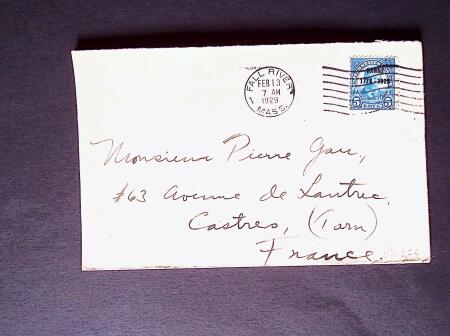 FALL RIVER
FEB 13
7 AM
1929
MASS.
1778 - 1928
5 5
Monsieur Pierre
#63 Avenue de Lautrec,
Castres, (Tarn)
France.